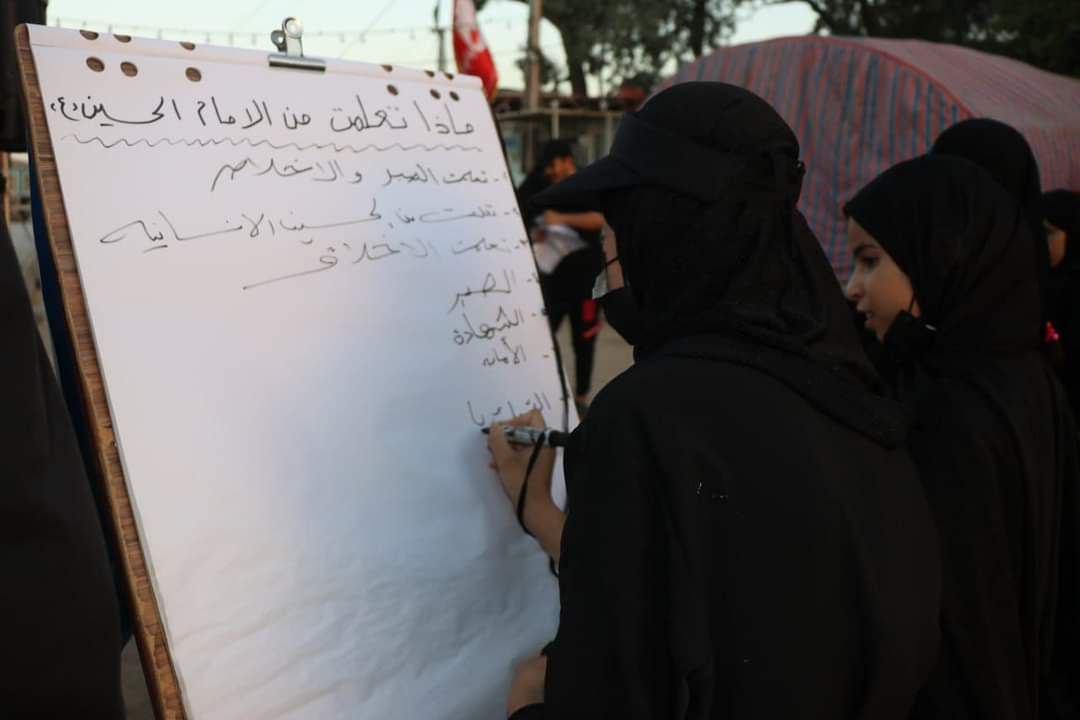 ماذا تعلمت من الامام الحسين (ع)
١- تعلمت الصبر والاخلاص
٢- تعلمت من الحسين الانسانيه
٣- تعلمت الاخلاق
٤- الصبر
٥- الشهادة
٦- الأمان